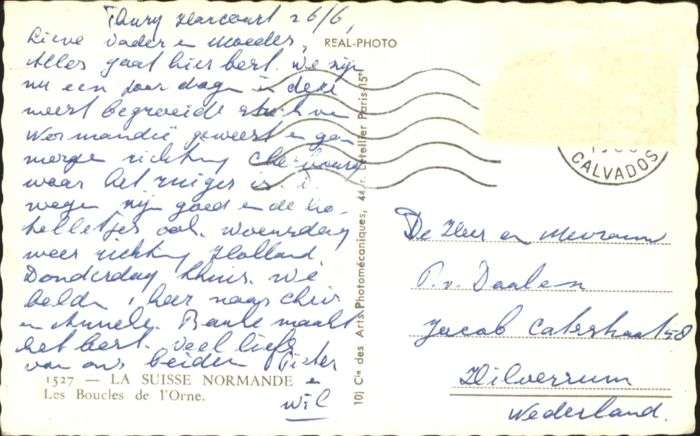 Thury Harcourt 26/6,
Lieve Vader en Moeder,
REAL-PHOTO
Alles gaat hier best. We zijn
nu een paar dagen in deze
meest begroeide streek van
Normandië geweest en gaan
morgen richting Cherbourg
waar het ruiger is. De
wegen zijn goed en de ho-
telletjes ook. Woensdag
weer richting Holland.
Donderdag thuis. We
belden
en Annely. maakt
het best. Veel liefs
van ons beiden Pieter
en
Wil
1527 — LA SUISSE NORMANDE
Les Boucles de l'Orne.
10) Cie des Arts Photomécaniques, 44, r. Letellier Paris-15e
CALVADOS
De Heer en Mevrouw
P. v. Daalen
Jacob Catsstraat 58
Hilversum
Nederland.